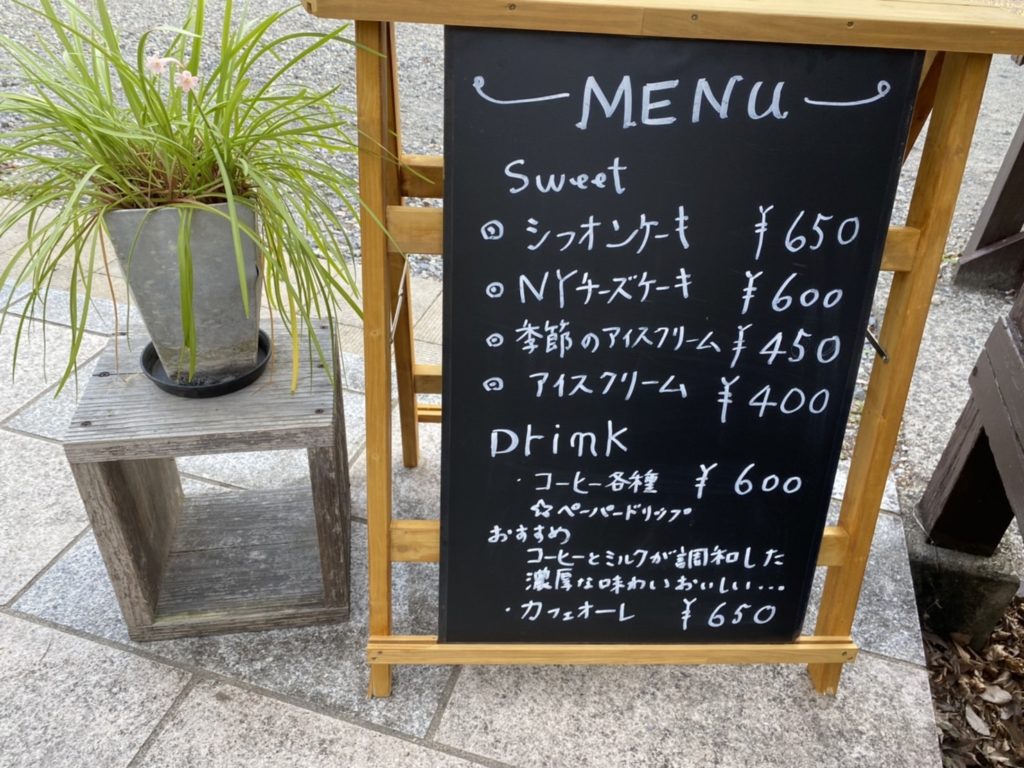 MENU
Sweet
◎ シフォンケーキ ¥650
◎ NYチーズケーキ ¥600
◎ 季節のアイスクリーム ¥450
◎ アイスクリーム ¥400
Drink
・コーヒー各種 ¥600
☆ペーパードリップ
おすすめ
コーヒーとミルクが調和した
濃厚な味わいおいしい...
・カフェオーレ ¥650